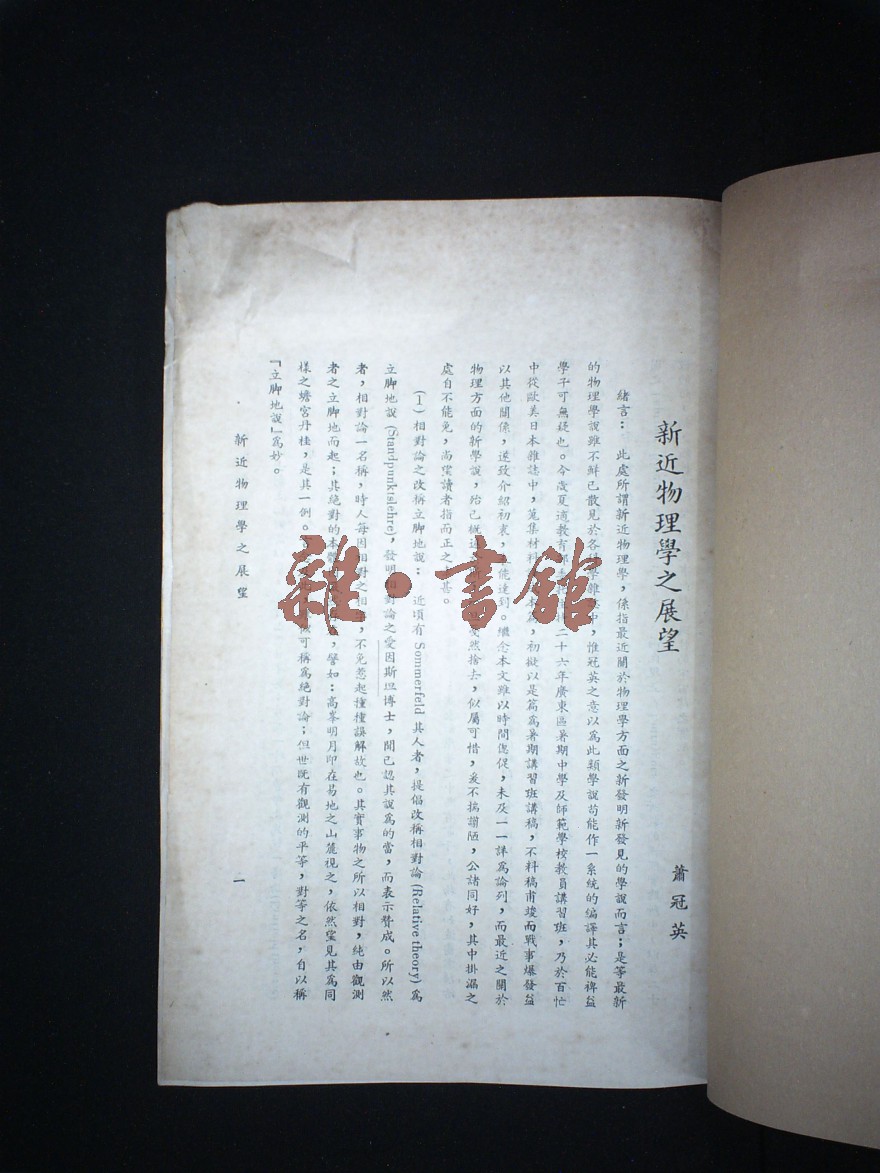 新近物理學之展望
蕭冠英
緒言： 此處所謂新近物理學，係指最近關於物理學方面之新發明新發見的學說而言；是等最新
的物理學說雖不鮮已散見於各 學雜 中，惟冠英之意以為此類學說苟能作一系統的編譯其必能裨益
學子可無疑也。今歲夏適教育部 二十六年廣東區暑期中學及師範學校教員講習班，乃於百忙
中從歐美日本雜誌中，蒐集材料 本 ，初擬以是篇為暑期講習班講稿，不料稿甫竣而戰事爆發益
以其他關係，遂致介紹初衷， 能達到。繼念本文雖以時間傯促，未及一一詳為論列，而最近之關於
物理方面的新學說，殆已概 然捨去，似屬可惜，爰不揣譾陋，公諸同好，其中掛漏之
處自不能免，尚望讀者指而正之 甚。
(一) 相對論之改稱立脚地說： 近頃有 Sommerfeld 其人者，提倡改稱相對論 (Relative theory) 為
立脚地說 (Standpunktslehre)，發明相對論之愛因斯坦博士，聞已認其說為的當，而表示贊成。所以然
者，相對論一名稱，時人每因相對之相 ，不免惹起種種誤解故也。其實事物之所以相對，純由觀測
者之立脚地而起；其絕對的本體 ，譬如：高峯明月即在易地之山麓視之，依然望見其為同
樣之蟾宮丹桂，是其一例。 可稱為絕對論；但世既有觀測的平等，對等之名，自以稱
「立脚地說」為妙。
新近物理學之展望
一
雜·書館